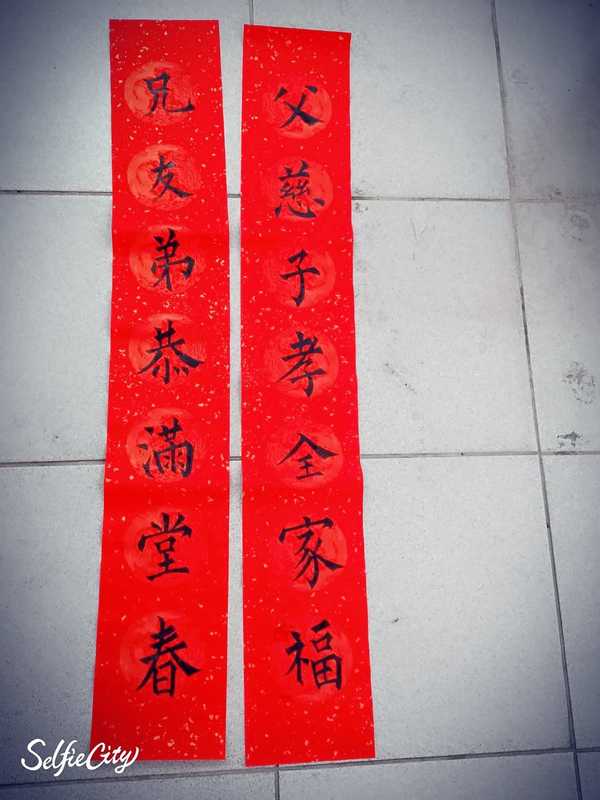 父慈子孝全家福
兄友弟恭滿堂春
SelfieCity